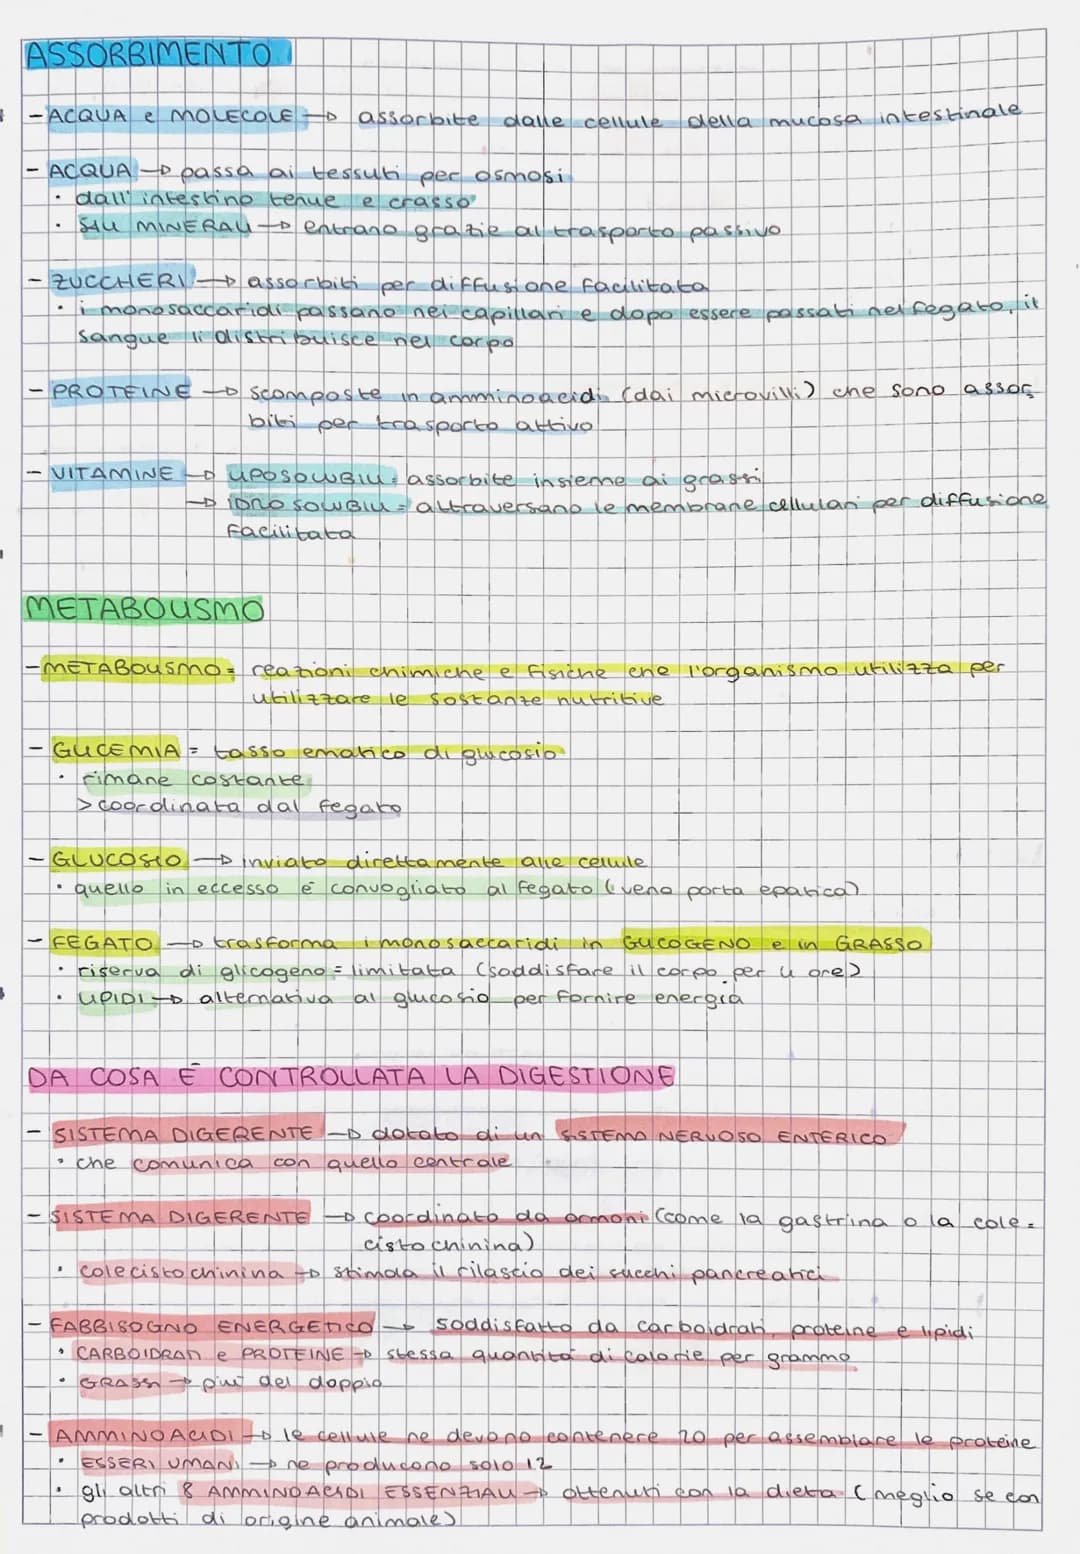 ASSORBIMENTO
- ACQUA e MOLECOLE → assorbite dalle cellule della mucosa intestinale
- ACQUA → passa ai tessuti per osmosi
· dall'intestino tenue e crasso
· SALI MINERALI → entrano grazie al trasporto passivo
- ZUCCHERI → assorbiti per diffusione facilitata
· i monosaccaridi passano nei capillari e dopo essere passati nel fegato, il
sangue li distribuisce nel corpo
- PROTEINE → scomposte in amminoacidi (dai microvilli) che sono assor
biti per trasporto attivo
- VITAMINE → LIPOSOLUBILI = assorbite insieme ai grassi
→ IDROSOLUBILI = attraversano le membrane cellulari per diffusione
facilitata
METABOLISMO
- METABOLISMO = reazioni chimiche e fisiche che l'organismo utilizza per
utilizzare le sostanze nutritive
- GLICEMIA = tasso ematico di glucosio
· rimane costante
> coordinata dal fegato
- GLUCOSIO → inviato direttamente alle cellule
· quello in eccesso è convogliato al fegato (vena porta epatica)
- FEGATO → trasforma i monosaccaridi in GLICOGENO e in GRASSO
· riserva di glicogeno = limitata (soddisfare il corpo per 4 ore)
· LIPIDI → alternativa al glucosio per fornire energia
DA COSA È CONTROLLATA LA DIGESTIONE
- SISTEMA DIGERENTE → dotato di un SISTEMA NERVOSO ENTERICO
· che comunica con quello centrale
- SISTEMA DIGERENTE → coordinato da ormoni (come la gastrina o la cole=
cistochinina)
· colecistochinina → stimola il rilascio dei succhi pancreatici
- FABBISOGNO ENERGETICO → soddisfatto da carboidrati, proteine e lipidi
· CARBOIDRATI e PROTEINE → stessa quantità di calorie per grammo
· GRASSI → più del doppio
- AMMINOACIDI → le cellule ne devono contenere 20 per assemblare le proteine
· ESSERI UMANI → ne producono solo 12
· gli altri 8 AMMINOACIDI ESSENZIALI → ottenuti con la dieta (meglio se con
prodotti di origine animale)